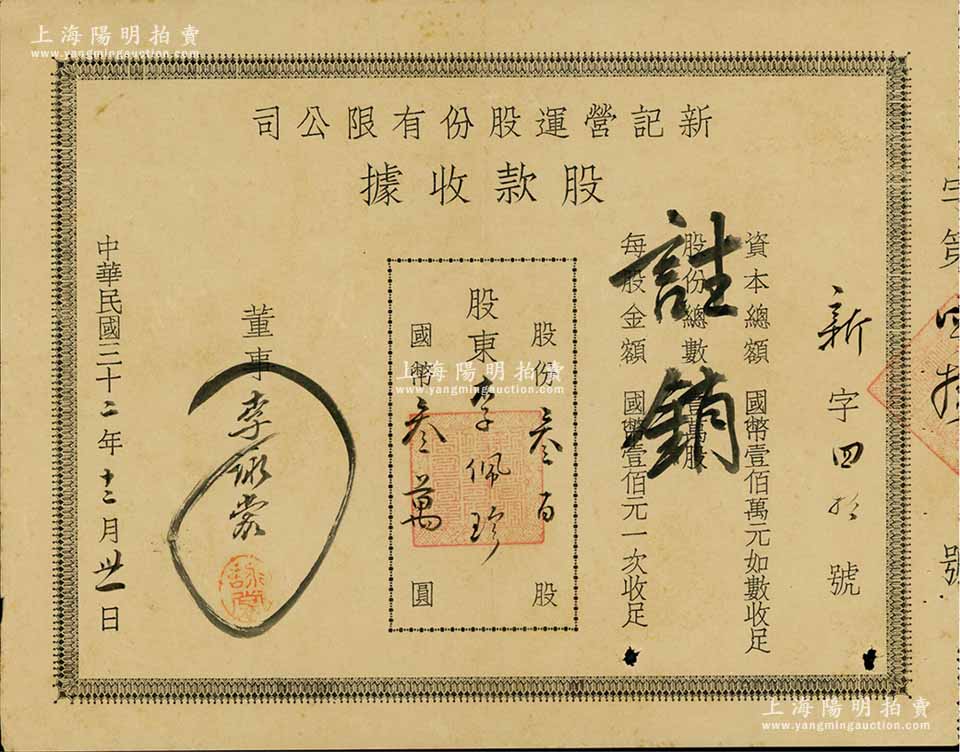 上海陽明拍賣
www.yangmingauction.com
新記營運股份有限公司
股款收據
字第四拾號
新字四拾號
資本總額 國幣壹佰萬元如數收足
股份總數 壹萬股
每股金額 國幣壹佰元一次收足
註銷
股份叁百股
股東李佩珍
國幣叁萬圓
董事李詠裳
詠裳
中華民國三十二年十二月卅一日
上海陽明拍賣
www.yangmingauction.com
上海陽明拍賣
www.yangmingauction.com